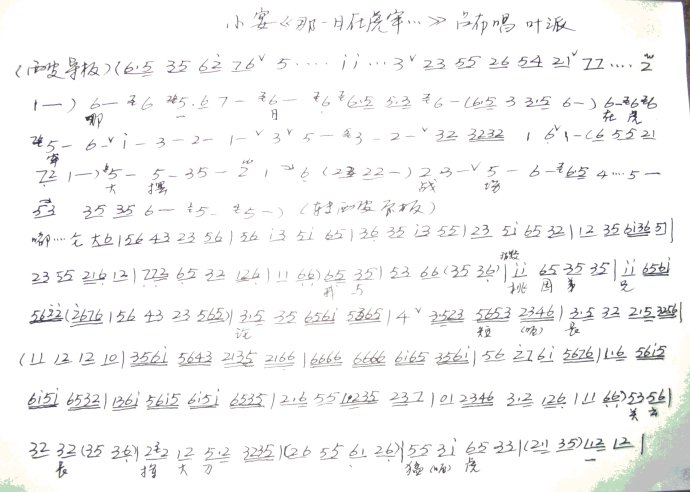 小宴《那一日在虎牢…》吕布唱 叶派
(西皮导板)(6·5 35 62̇ 76ᵛ 5···· i̇ i̇ ···3ᵛ 23 55 26 54 21ᵛ 77···· 2
1—) 6— 6 5·6 7— 6— 6 6·5 5·3 6—(6·5 3 3·5 6—) 6—6 6
哪 一 日 在 虎
5— 6—ᵛi̇—3—2— 1—ᵛ3ᵛ5— 3—2—ᵛ32 3232 1 6ᵛ1—(6 5521
牢
72 1—) 5— 5—35—2 1 6 (23 22—) 2 3—ᵛ5— 6— 6·5 4····5—
大 摆 战 场
53 35 35 6— 5— 5—) (转西皮原板)
嘟····仓 大6|56 43 23 56|56 i̇3 5i̇ 65|36 35 i̇3 55|23 5i̇ 65 32|12 35 6i̇36 5|
23 55 216 12|772 65 32 126|11 66)65 35|53 66(35 36)|i̇i̇ 65 35 35|i̇i̇ 656i̇
我与 桃 园 弟 兄
562̇2̇(2̇676|56 43 23 565)|3·5 35 656i̇ 5365|4ᵛ 3523 5653 2346|3·5 32 215 3256|
论 短 (呐) 长
(11 12 12 10|356i̇ 5643 2135 2166|6666 6666 6i̇65 356i̇|56 2̇76i̇ 5676|1·6 56i̇5
6i̇5i̇ 6532|136i̇ 56i̇5 6i̇5i̇ 6535|216 55 10235 237|01 2346 3·2 126|11 66)5356|
关 云
32 32(35 36)|22 12 5·2 3235|(26 55 61 26)|55 3i̇ 65 33|(2·1 35)12 12|
长 挥 大 刀 猛(呐)虎